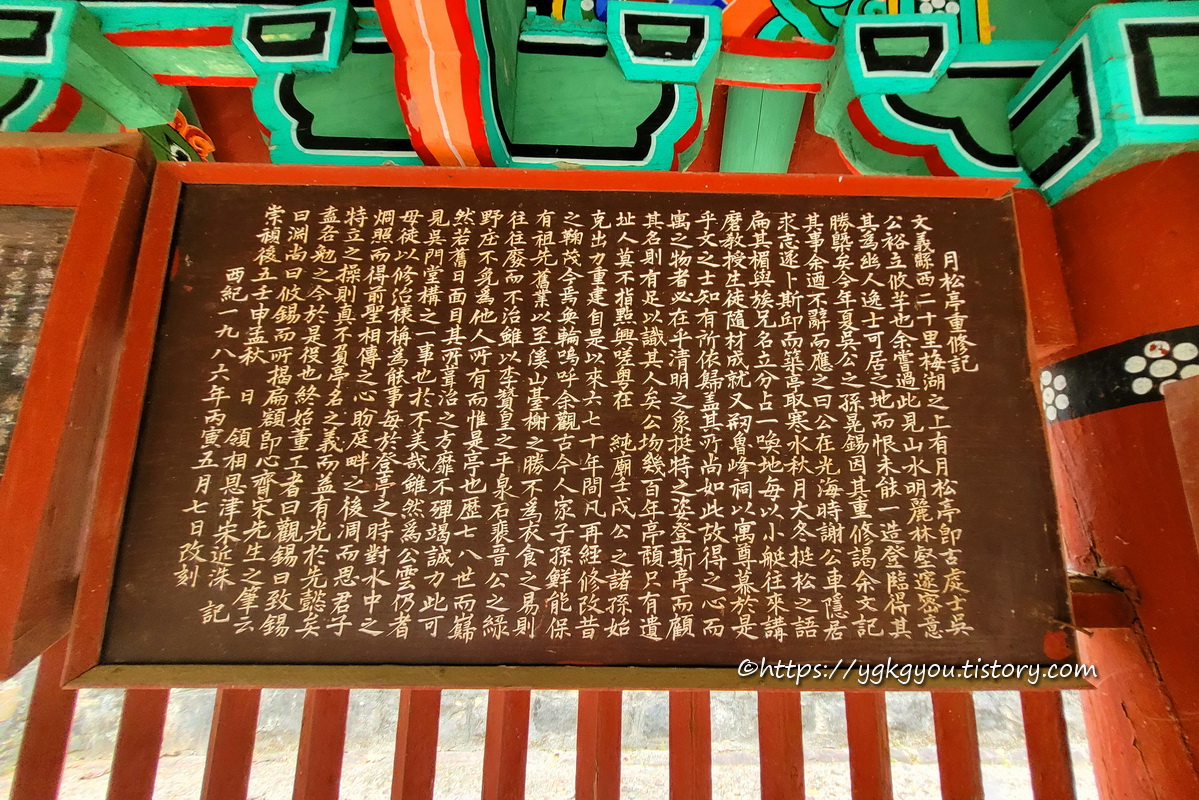 月松亭重修記
文義縣西二十里梅湖之上有月松亭卽古處士吳
公裕立攸芋也余嘗過此見山水明麗林壑邃密意
其爲幽人逸士可居之地而恨未能一造登臨得其
勝槩矣今年夏吳公之孫晃錫因其重修謁余文記
其事余迺不辭而應之曰公在光海時謝公車隱居
求志遂卜斯邱而築亭取寒水秋月大冬挺松之語
扁其楣與族兄名立分占一喚地每以小艇往來講
磨敎授生徒隨材成就又刱魯峰祠以寓尊慕於是
乎文之士知有所依歸盖其所尚如此故得之心而
寓之物者必在乎淸明之象挺特之姿登斯亭而顧
其名則有足以識其人矣公歿幾百年亭頹只有遺
址人莫不指點興嗟粤在 純廟壬戌公之諸孫始
克出力重建自是以來六七十年間凡再經修改昔
之鞠茂今焉奐輪嗚呼余觀古今人家子孫鮮能保
有祖先舊業以至溪山臺榭之勝不爲衣食之易則
往往廢而不治雖以李贊皇之平泉石裴晉公之綠
野庄不免爲他人所有而惟是亭也歷七八世而巋
然若舊日面目其所葺治之方靡不殫竭誠力此可
見吳門堂構之一事也於不美哉雖然爲公雲仍者
毋徒以修治樣稱爲能事每於登亭之時對水中之
烱照而得前聖相傳之心盼庭畔之後凋而思君子
特立之操則眞不負亭名之義而益有光於先懿矣
盍各勉之今於是役也終始重工者曰觀錫曰致錫
曰淵尚曰攸錫而所揭扁額卽心齋宋先生之筆云
崇禎後五壬申孟秋 日 領相恩津宋近洙 記
西紀一九八六年丙寅五月七日改刻
©https://ygkgyou.tistory.com